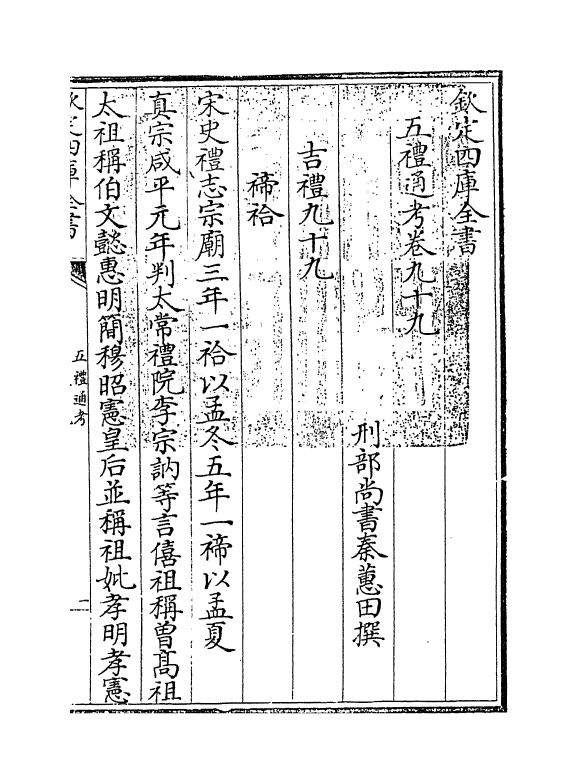 欽定四庫全書
五禮通考卷九十九
刑部尚書秦蕙田撰
吉禮九十九
禘祫
宋史禮志宗廟三年一祫以孟冬五年一禘以孟夏
真宗咸平元年判太常禮院李宗訥等言僖祖稱曾髙祖
太祖稱伯文懿惠明簡穆昭憲皇后並稱祖妣孝明孝憲
欽定四庫全書
五禮通考
一